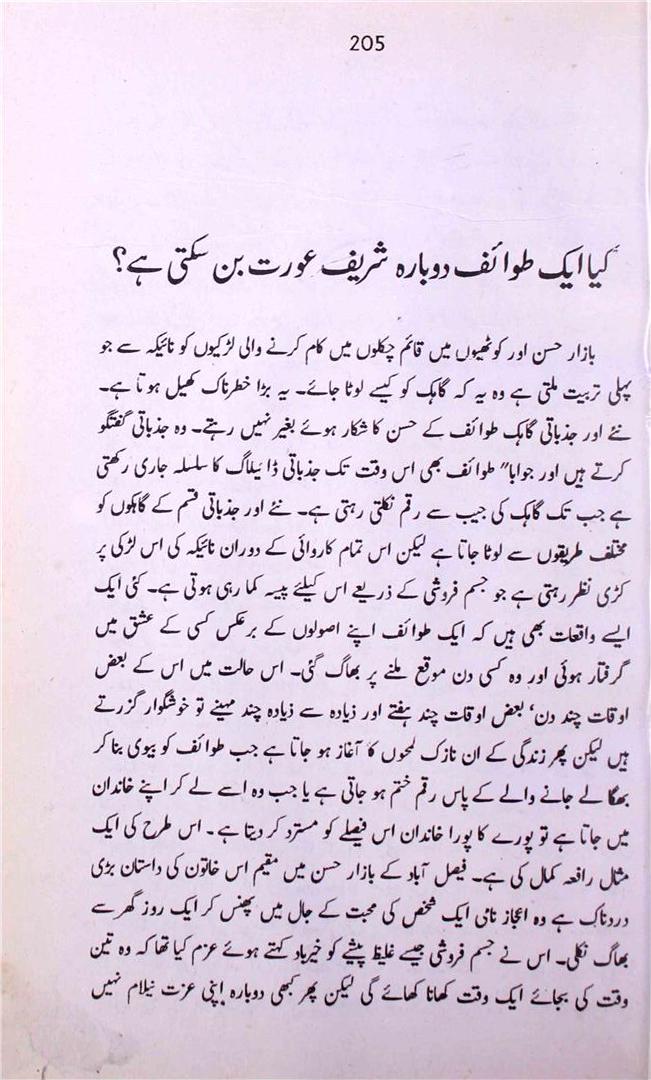 205
کیا ایک طوائف دوبارہ شریف عورت بن سکتی ہے؟
بازار حسن اور کوٹھیوں میں قائم چکلوں میں کام کرنے والی لڑکیوں کو نائیکہ سے جو
پہلی تربیت ملتی ہے وہ یہ کہ گاہک کو کیسے لوٹا جائے۔ یہ بڑا خطرناک کھیل ہوتا ہے۔
نئے اور جذباتی گاہک طوائف کے حسن کا شکار ہوئے بغیر نہیں رہتے۔ وہ جذباتی گفتگو
کرتے ہیں اور جوابا" طوائف بھی اس وقت تک جذباتی ڈائیلاگ کا سلسلہ جاری رکھتی
ہے جب تک گاہک کی جیب سے رقم نکلتی رہتی ہے۔ نئے اور جذباتی قسم کے گاہکوں کو
مختلف طریقوں سے لوٹا جاتا ہے لیکن اس تمام کاروائی کے دوران نائیکہ کی اس لڑکی پر
کڑی نظر رہتی ہے جو جسم فروشی کے ذریعے اس کیلئے پیسہ کما رہی ہوتی ہے۔ کئی ایک
ایسے واقعات بھی ہیں کہ ایک طوائف اپنے اصولوں کے برعکس کسی کے عشق میں
گرفتار ہوئی اور وہ کسی دن موقع ملنے پر بھاگ گئی۔ اس حالت میں اس کے بعض
اوقات چند دن، بعض اوقات چند ہفتے اور زیادہ سے زیادہ چند مہینے تو خوشگوار گزرتے
ہیں لیکن پھر زندگی کے ان نازک لمحوں کا آغاز ہو جاتا ہے جب طوائف کو بیوی بنا کر
بھگا لے جانے والے کے پاس رقم ختم ہو جاتی ہے یا جب وہ اسے لے کر اپنے خاندان
میں جاتا ہے تو پورے کا پورا خاندان اس فیصلے کو مسترد کر دیتا ہے۔ اس طرح کی ایک
مثال رافعہ کمال کی ہے۔ فیصل آباد کے بازار حسن میں مقیم اس خاتون کی داستان بڑی
دردناک ہے وہ اعجاز نامی ایک شخص کی محبت کے جال میں پھنس کر ایک روز گھر سے
بھاگ نکلی۔ اس نے جسم فروشی جیسے غلیظ پیشے کو خیرباد کہتے ہوئے عزم کیا تھا کہ وہ تین
وقت کی بجائے ایک وقت کھانا کھائے گی لیکن پھر کبھی دوبارہ اپنی عزت نیلام نہیں